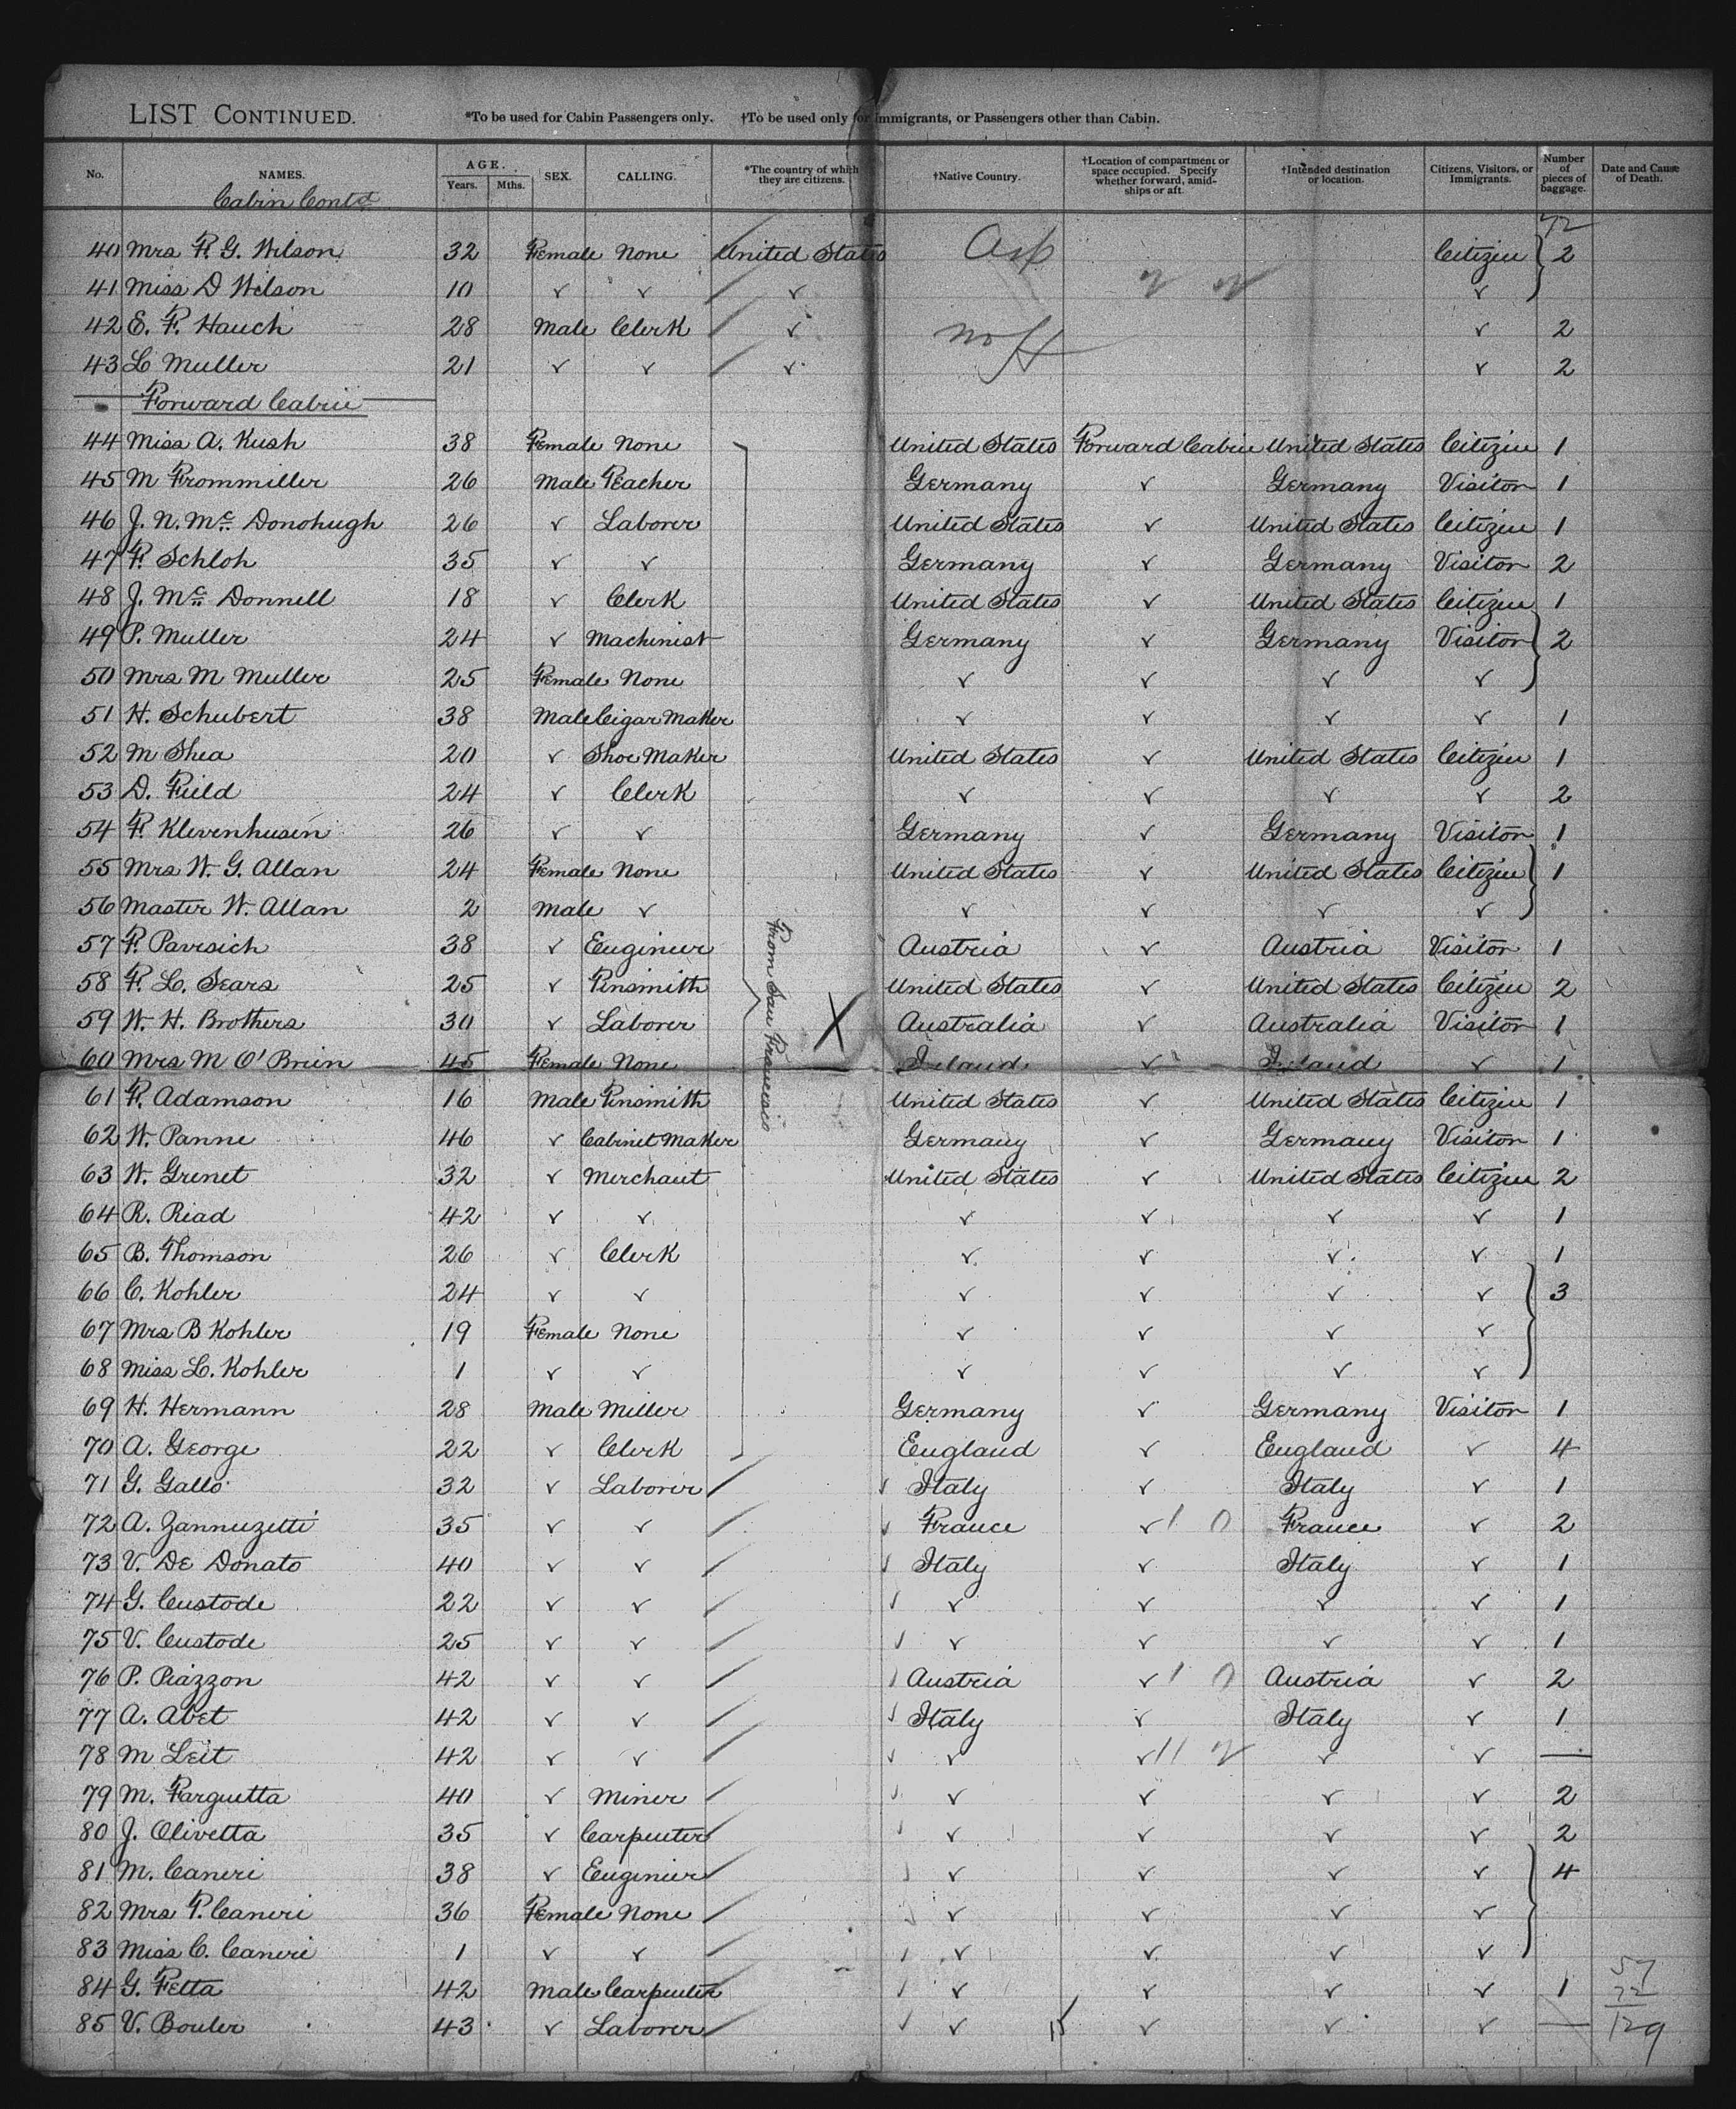 LIST CONTINUED. *To be used for Cabin Passengers only. †To be used only for Immigrants, or Passengers other than Cabin.
No. NAMES. AGE. Years. Mths. SEX. CALLING. *The country of which they are citizens. †Native Country. †Location of compartment or space occupied. Specify whether forward, amidships or aft. †Intended destination or location. Citizens, Visitors, or Immigrants. Number of pieces of baggage. Date and Cause of Death.
Cabin Contd
72
40 Mrs F. G. Wilson 32 Female None United States Citizen 2
41 Miss D Wilson 10 ✓ ✓ ✓ ✓
42 E. F. Hauch 28 Male Clerk ✓ ✓ 2
43 L Muller 21 ✓ ✓ ✓ ✓ 2
Forward Cabin
44 Miss A. Kush 38 Female None United States Forward Cabin United States Citizen 1
45 M Frommiller 26 Male Teacher Germany ✓ Germany Visitor 1
46 J. N. Mc Donohugh 26 ✓ Laborer United States ✓ United States Citizen 1
47 F. Schloh 35 ✓ ✓ Germany ✓ Germany Visitor 2
48 J. Mc Donnell 18 ✓ Clerk United States ✓ United States Citizen 1
49 P. Muller 24 ✓ Machinist Germany ✓ Germany Visitor 2
50 Mrs M Muller 25 Female None ✓ ✓ ✓ ✓
51 H. Schubert 38 Male Cigar Maker ✓ ✓ ✓ ✓ 1
52 M Shea 20 ✓ Shoe Maker United States ✓ United States Citizen 1
53 D. Field 24 ✓ Clerk ✓ ✓ ✓ ✓ 2
54 F. Klevenhusen 26 ✓ ✓ Germany ✓ Germany Visitor 1
55 Mrs W. G. Allan 24 Female None United States ✓ United States Citizen 1
56 Master W. Allan 2 Male ✓ ✓ ✓ ✓ ✓
57 F. Pavisich 38 ✓ Engineer Austria ✓ Austria Visitor 1
58 F. L. Sears 25 ✓ Tinsmith United States ✓ United States Citizen 2
59 W. H. Brothers 30 ✓ Laborer Australia ✓ Australia Visitor 1
60 Mrs M O'Brien 45 Female None Ireland ✓ Ireland ✓ 1
61 F. Adamson 16 Male Tinsmith United States ✓ United States Citizen 1
62 W. Panne 46 ✓ Cabinet Maker Germany ✓ Germany Visitor 1
63 W. Grenet 32 ✓ Merchant United States ✓ United States Citizen 2
64 R. Riad 42 ✓ ✓ ✓ ✓ ✓ ✓ 1
65 B. Thomson 26 ✓ Clerk ✓ ✓ ✓ ✓ 1
66 C. Kohler 24 ✓ ✓ ✓ ✓ ✓ ✓ 3
67 Mrs B Kohler 19 Female None ✓ ✓ ✓ ✓
68 Miss L. Kohler 1 ✓ ✓ ✓ ✓ ✓ ✓
69 H. Hermann 28 Male Miller Germany ✓ Germany Visitor 1
70 A. George 22 ✓ Clerk England ✓ England ✓ 4
From San Francisco
X
71 G. Gallo 32 ✓ Laborer Italy ✓ Italy ✓ 1
72 A. Zannuzetti 35 ✓ ✓ France ✓ 1 0 France ✓ 2
73 V. De Donato 40 ✓ ✓ Italy ✓ Italy ✓ 1
74 G. Custode 22 ✓ ✓ ✓ ✓ ✓ ✓ 1
75 V. Custode 25 ✓ ✓ ✓ ✓ ✓ ✓ 1
76 P. Piazzon 42 ✓ ✓ Austria ✓ 1 0 Austria ✓ 2
77 A. Abet 42 ✓ ✓ Italy ✓ Italy ✓ 1
78 M Leit 42 ✓ ✓ ✓ ✓ 11 ✓ ✓ —
79 M. Farguetta 40 ✓ Miner ✓ ✓ ✓ ✓ 2
80 J. Olivetta 35 ✓ Carpenter ✓ ✓ ✓ ✓ 2
81 M. Caneri 38 ✓ Engineer ✓ ✓ ✓ ✓ 4
82 Mrs P. Caneri 36 Female None ✓ ✓ ✓ ✓
83 Miss C. Caneri 1 ✓ ✓ ✓ ✓ ✓ ✓
84 G. Fetta 42 Male Carpenter ✓ ✓ ✓ ✓ 1
85 V. Bouler 43 ✓ Laborer ✓ 15 ✓ ✓ ✓ —
57
72
129